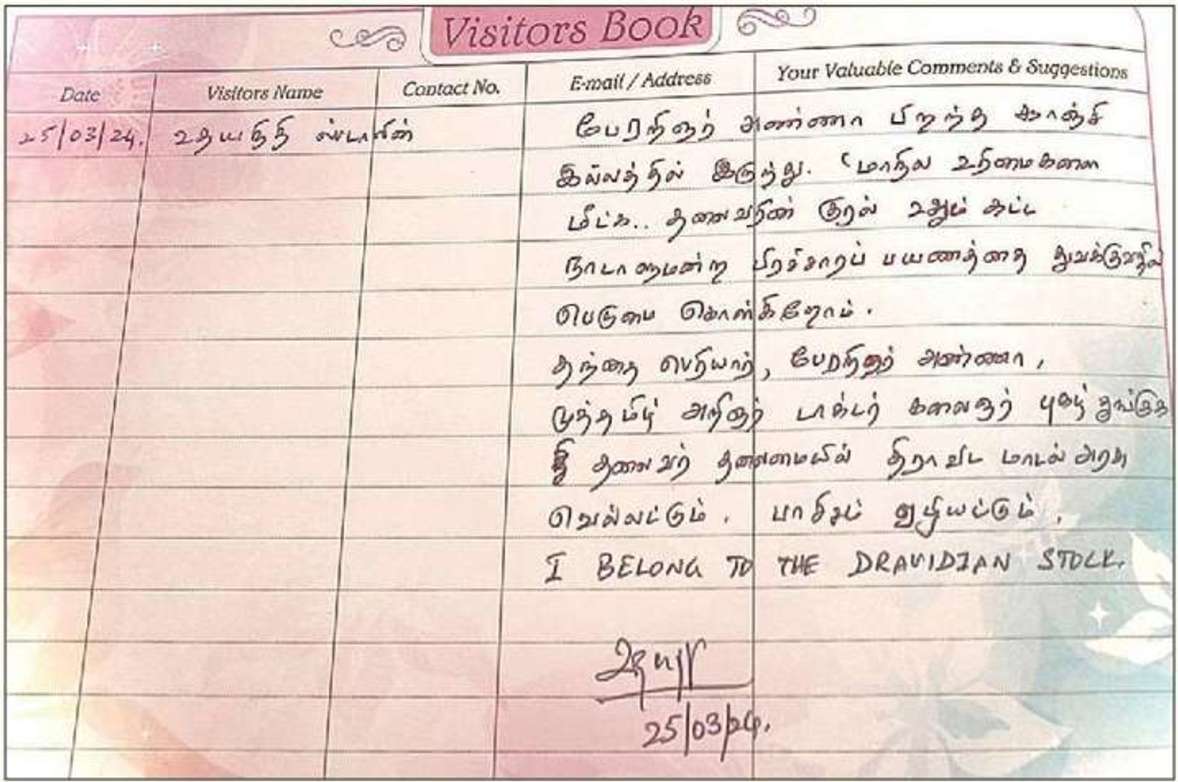 Visitors Book
Date Visitors Name Contact No. E-mail / Address Your Valuable Comments & Suggestions
25/03/24. உதயநிதி ஸ்டாலின் பேரறிஞர் அண்ணா பிறந்த காஞ்சி
இல்லத்தில் இருந்து. 'மாநில உரிமைகளை
மீட்க.. தலைவரின் குரல் உதும் கட்ட
நாடாளுமன்ற பிரச்சாரப் பயணத்தை துவக்குவதில்
பெருமை கொள்கிறோம்.
தந்தை பெரியார், பேரறிஞர் அண்ணா,
முத்தமிழ் அறிஞர் டாக்டர் கலைஞர் புகழ்
தலைவர் தலைமையில் திராவிட மாடல் அரசு
வெல்லட்டும். பாசிசம் ஒழியட்டும்.
I BELONG TO THE DRAVIDIAN STOCK.
உதய
25/03/24.